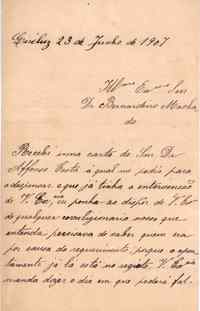 Queluz 23 de Junho de 1907
Illmo Exmo Snr
Dr Bernardino Macha
do
Recebi uma carta do Snr Dr
Affonso Costa á qual me pedia para
o designar e que, já tinha a intervenção
de V. Exa, eu ponha ao dispor de V. Exa
de qualquer correligionario nosso que
entenda precisava de saber quem era
por causa do requerimento, porque o
lamento já lá está no registo V. Exa
manda dizer o dia em que poderá fal-